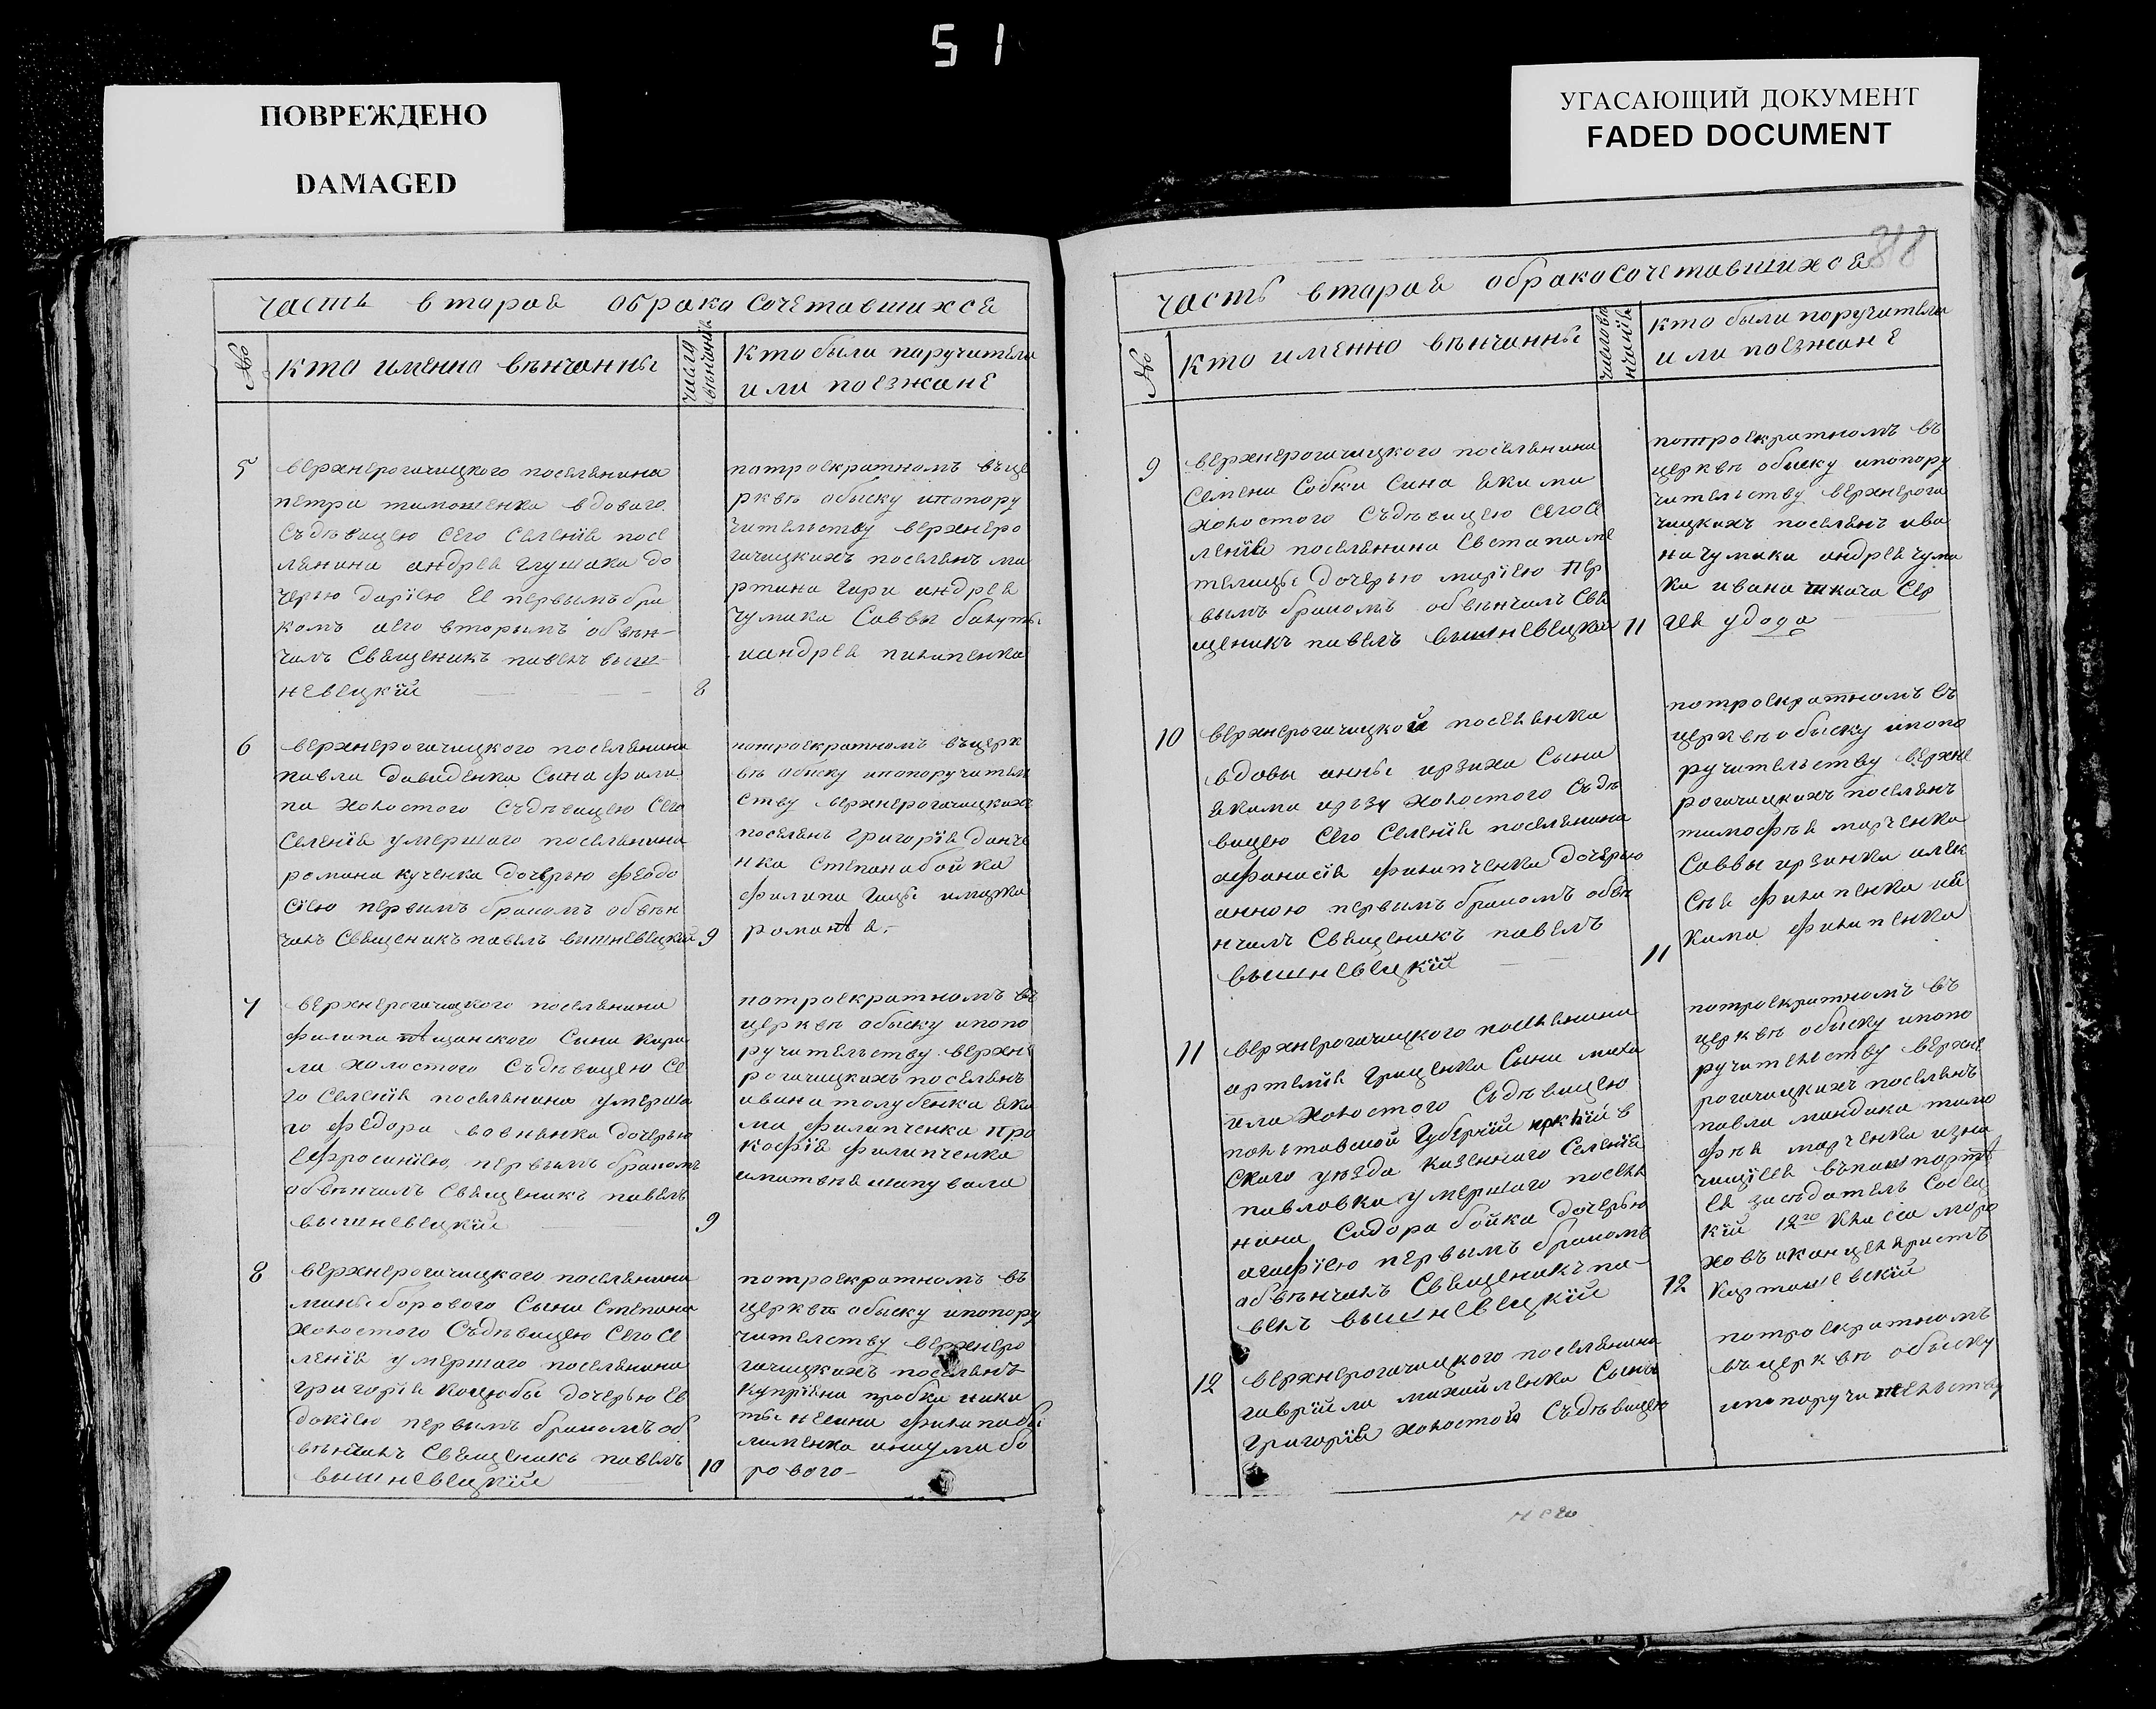 51
ПОВРЕЖДЕНО
DAMAGED
УГАСАЮЩИЙ ДОКУМЕНТ
FADED DOCUMENT
часть вторая обракосочетавшихся
№
кто именно вѣнчанны
числа вѣнчанія
кто были паручители
или поезжане
5
верхнерогачицкого поселянина
петра тимошенка вдоваго
съдѣвицею сего селенія посе
лянина андрея глушака до
черью дарїею ее первымъ бра
комъ аего вторымъ обвѣн-
чалъ священикъ павелъ выш-
невецкїй
8
потроекратномъ въце
рквѣ обыску ипопору
чительству верхнеро
гачицкихъ поселянъ ма
ртина гири андрея
чумака Саввы бакуты
иандрея пилипенка
6
верхнерогачицкого поселянина
павла давиденка сына фили
па холостого съдѣвицею сего
селенія умершаго поселянина
романа кученка дочерью феодо
сїею первымъ бракомъ обвѣн
чалъ священикъ павелъ вышневецкїй
9
потроекратномъ въцерк
вѣ обыску ипопоручитель
ству верхнерогачицкихъ
поселянъ григорїя данче
нка степана бойка
филипа гицы
7
верхнерогачицкого поселянина
филипа сына кири
ла холостого съдѣвицею се
го селенія поселянина умерша
го федора вовненка дочерью
ефросинїею, первымъ бракомъ
обвѣнчалъ священикъ павелъ
вышневецкїй
9
потроекратномъ въ
церквѣ обыску ипопо
ручительству верхне
рогачицкихъ поселянъ
ивана толубенка яки
ма филипченка про
кофїя филипченка
иматвея шаповала
8
верхнерогачицкого поселянина
мины борового сына степана
холостого съдѣвицею сего се
ленія умершаго поселянина
григорїя коцюбы дочерью ев
докїею первымъ бракомъ об
вѣнчалъ священикъ павелъ
вышневецкїй
10
потроекратномъ въ
церквѣ обыску ипопору
чителству верхнеро
гачицкихъ поселянъ
купрїяна пробки ники
ты филипа бы
лименка инаума бо
рового
часть вторая обракосочетавшихся
№
кто именно вѣнчанны
число вѣнчанїя
кто были поручители
или поезжане
9
верхнерогачицкого поселянина
семена собки сина якима
холостого съдѣвицею сего се
ленія поселянина евстапа ме
телицы дочерью марїею пер
вымъ бракомъ обвѣнчалъ свя
щеникъ павелъ вышневецкїй
11
потроекратномъ въ
церквѣ обыску ипопору
чительству верхнерога
чицкихъ поселянъ ива
на чумака андрея чума
ка ивана ткача сер
гея удода
10
верхнерогачицкой поселянки
вдовы анны ирзихи сына
якима ирзу холостого съдѣ
вицею сего селенія поселянина
афанасїя филипченка дочерью
анною первымъ бракомъ обвѣ
нчалъ священикъ павелъ
вышневецкїй
11
потроекратномъ въ
церквѣ обыску ипопо
ручительству верхне
рогачицкихъ поселянъ
тимофѣя марченка
саввы ирзенка алек
сѣя филипенка ия
кима филипенка
11
верхнерогачицкого поселянина
артемїя гриценка сына миха
ила холостого съдѣвицею
полтавской губернїи
ского уѣзда казенного селенія
павловки умершаго поселя
нина сидора бойка дочерью
агафїею первымъ бракомъ
обвѣнчалъ священикъ па-
велъ вышневецкїй
12
потроекратномъ въ
церквѣ обыску ипопо
ручительству верхне
рогачицкихъ поселянъ
павла миндака тимо
фѣя марченка изна
чащїеся въпашпортѣ
ея засѣдатель собец
кїй 12го класса моро
ховъ иканцеляристъ
карташевскїй
12
верхнерогачицкого поселянина
гаврїила михайленка сына
григорїя холостой съдѣвицею
потроекратномъ
въцерквѣ обыску
ипопоручительству